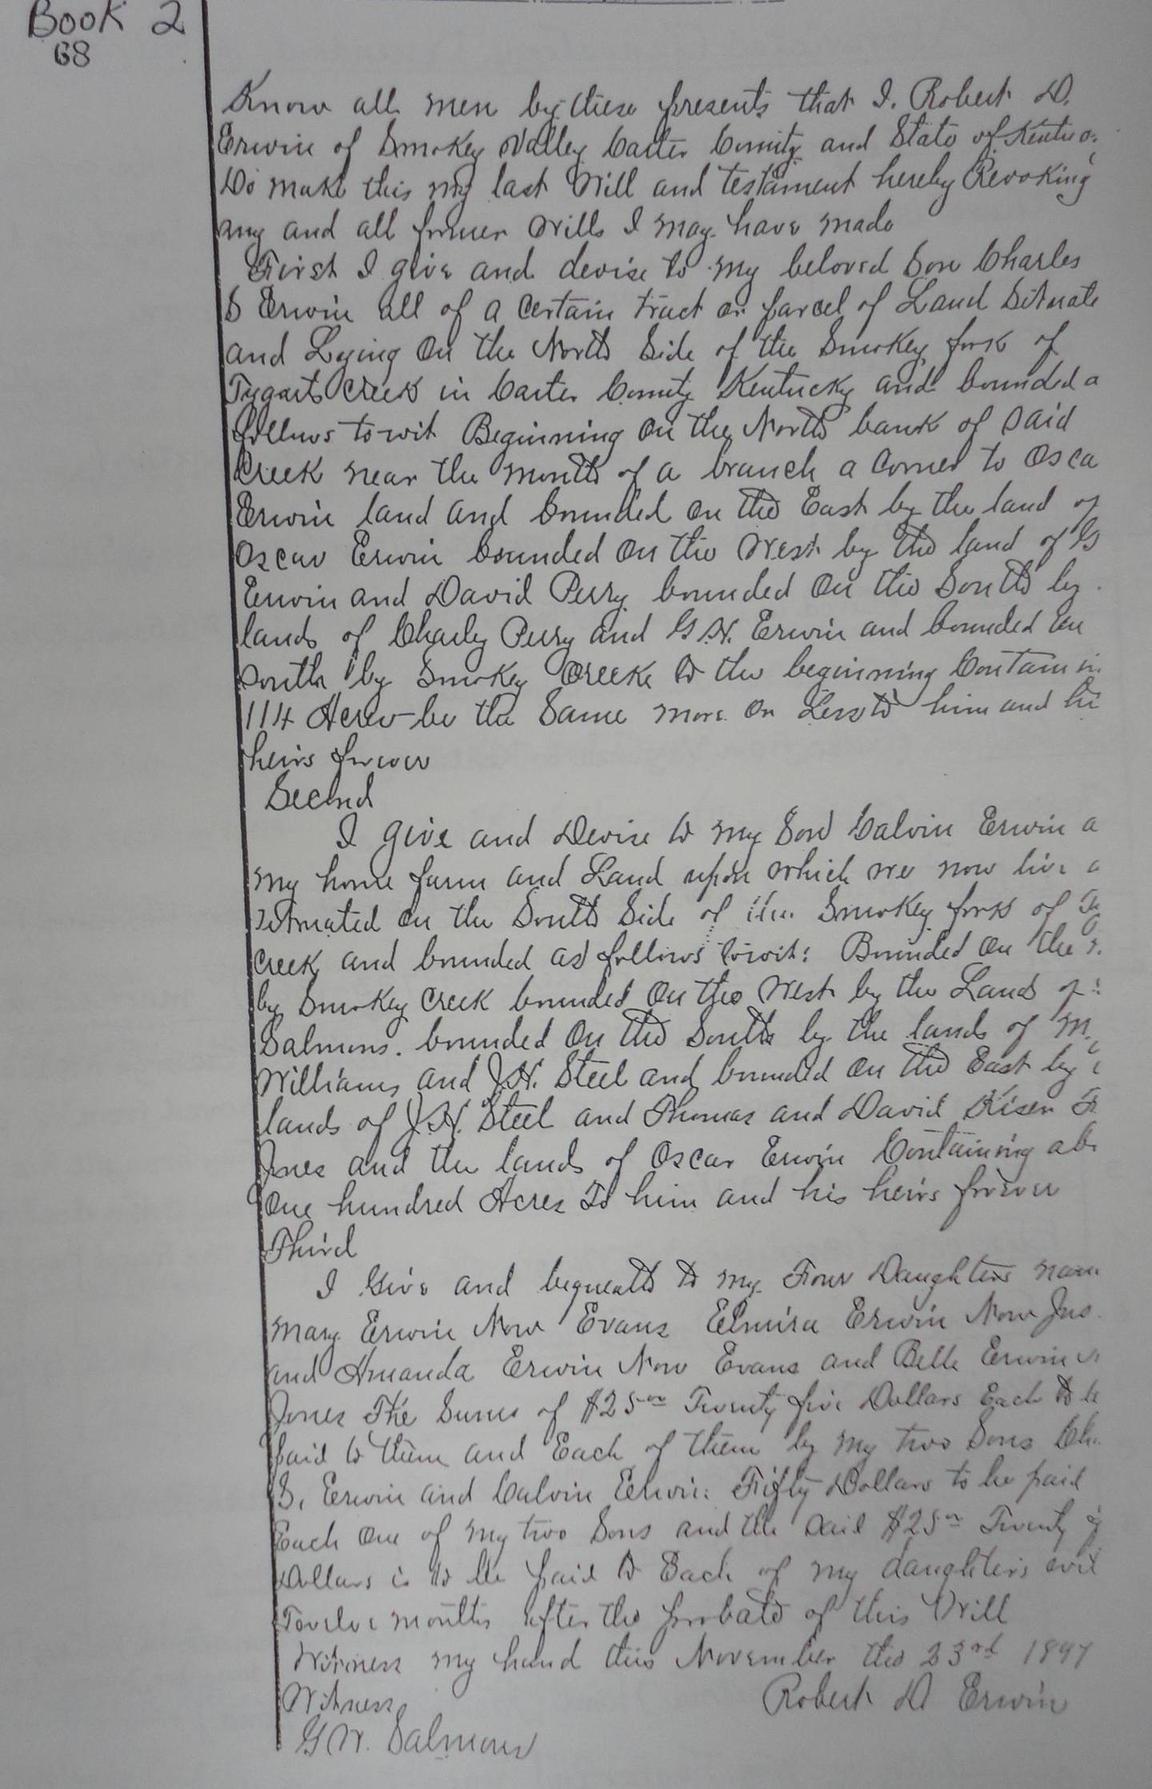 Book 2
68
Know all men by these presents that I. Robert D.
Erwin of Smokey Valley Carter County and State of Kentuc
Do make this my last Will and testament hereby Revoking
any and all former Wills I may have made
First I give and devise to my beloved Son Charles
S Erwin all of a Certain tract or parcel of Land Situate
and Lying On the North Side of the Smokey fork of
Tygarts Creek in Carter County Kentucky and bounded a
follows to wit Beginning On the North bank of Said
Creek near the mouth of a branch a Corner to Osca
Erwin land and bounded on the East by the land of
Oscar Erwin bounded On the West by the land of G
Erwin and David Perry bounded On the South by
lands of Charley Perry and G H. Erwin and bounded on
South by Smokey Creeke to the beginning Containin
114 Acres be the Same more or Less to him and hi
heirs forever
Second
I give and Devise to my Son Calvin Erwin a
my home farm and Land upon which we now live a
situated on the South Side of the Smokey fork of Ty
Creek and bounded as follows towit: Bounded On the
by Smokey Creek bounded On the West by the Lands of
Salmons. bounded On the South by the lands of M
Williams and J.H. Steel and bounded on the East by
lands of J.H. Steel and Thomas and David Kiser
Jones and the lands of Oscar Erwin Containing abo
One hundred Acres To him and his heirs forever
Third
I Give and bequeath to my Four Daughters nam
Mary Erwin Now Evans Elmira Erwin Now
and Amanda Erwin Now Evans and Belle Erwin
Jones The Sums of $25 00 Twenty five Dollars Each to b
paid to them and Each of them by my two Sons Cha
S. Erwin and Calvin Erwin: Fifty Dollars to be paid
Each One of my two Sons and the Said $25 00 Twenty f
Dollars is to be paid to Each of my daughters
Twelve months after the probate of this Will
Witness my hand this November the 23rd 1897
Witness Robert D Erwin
G W. Salmons